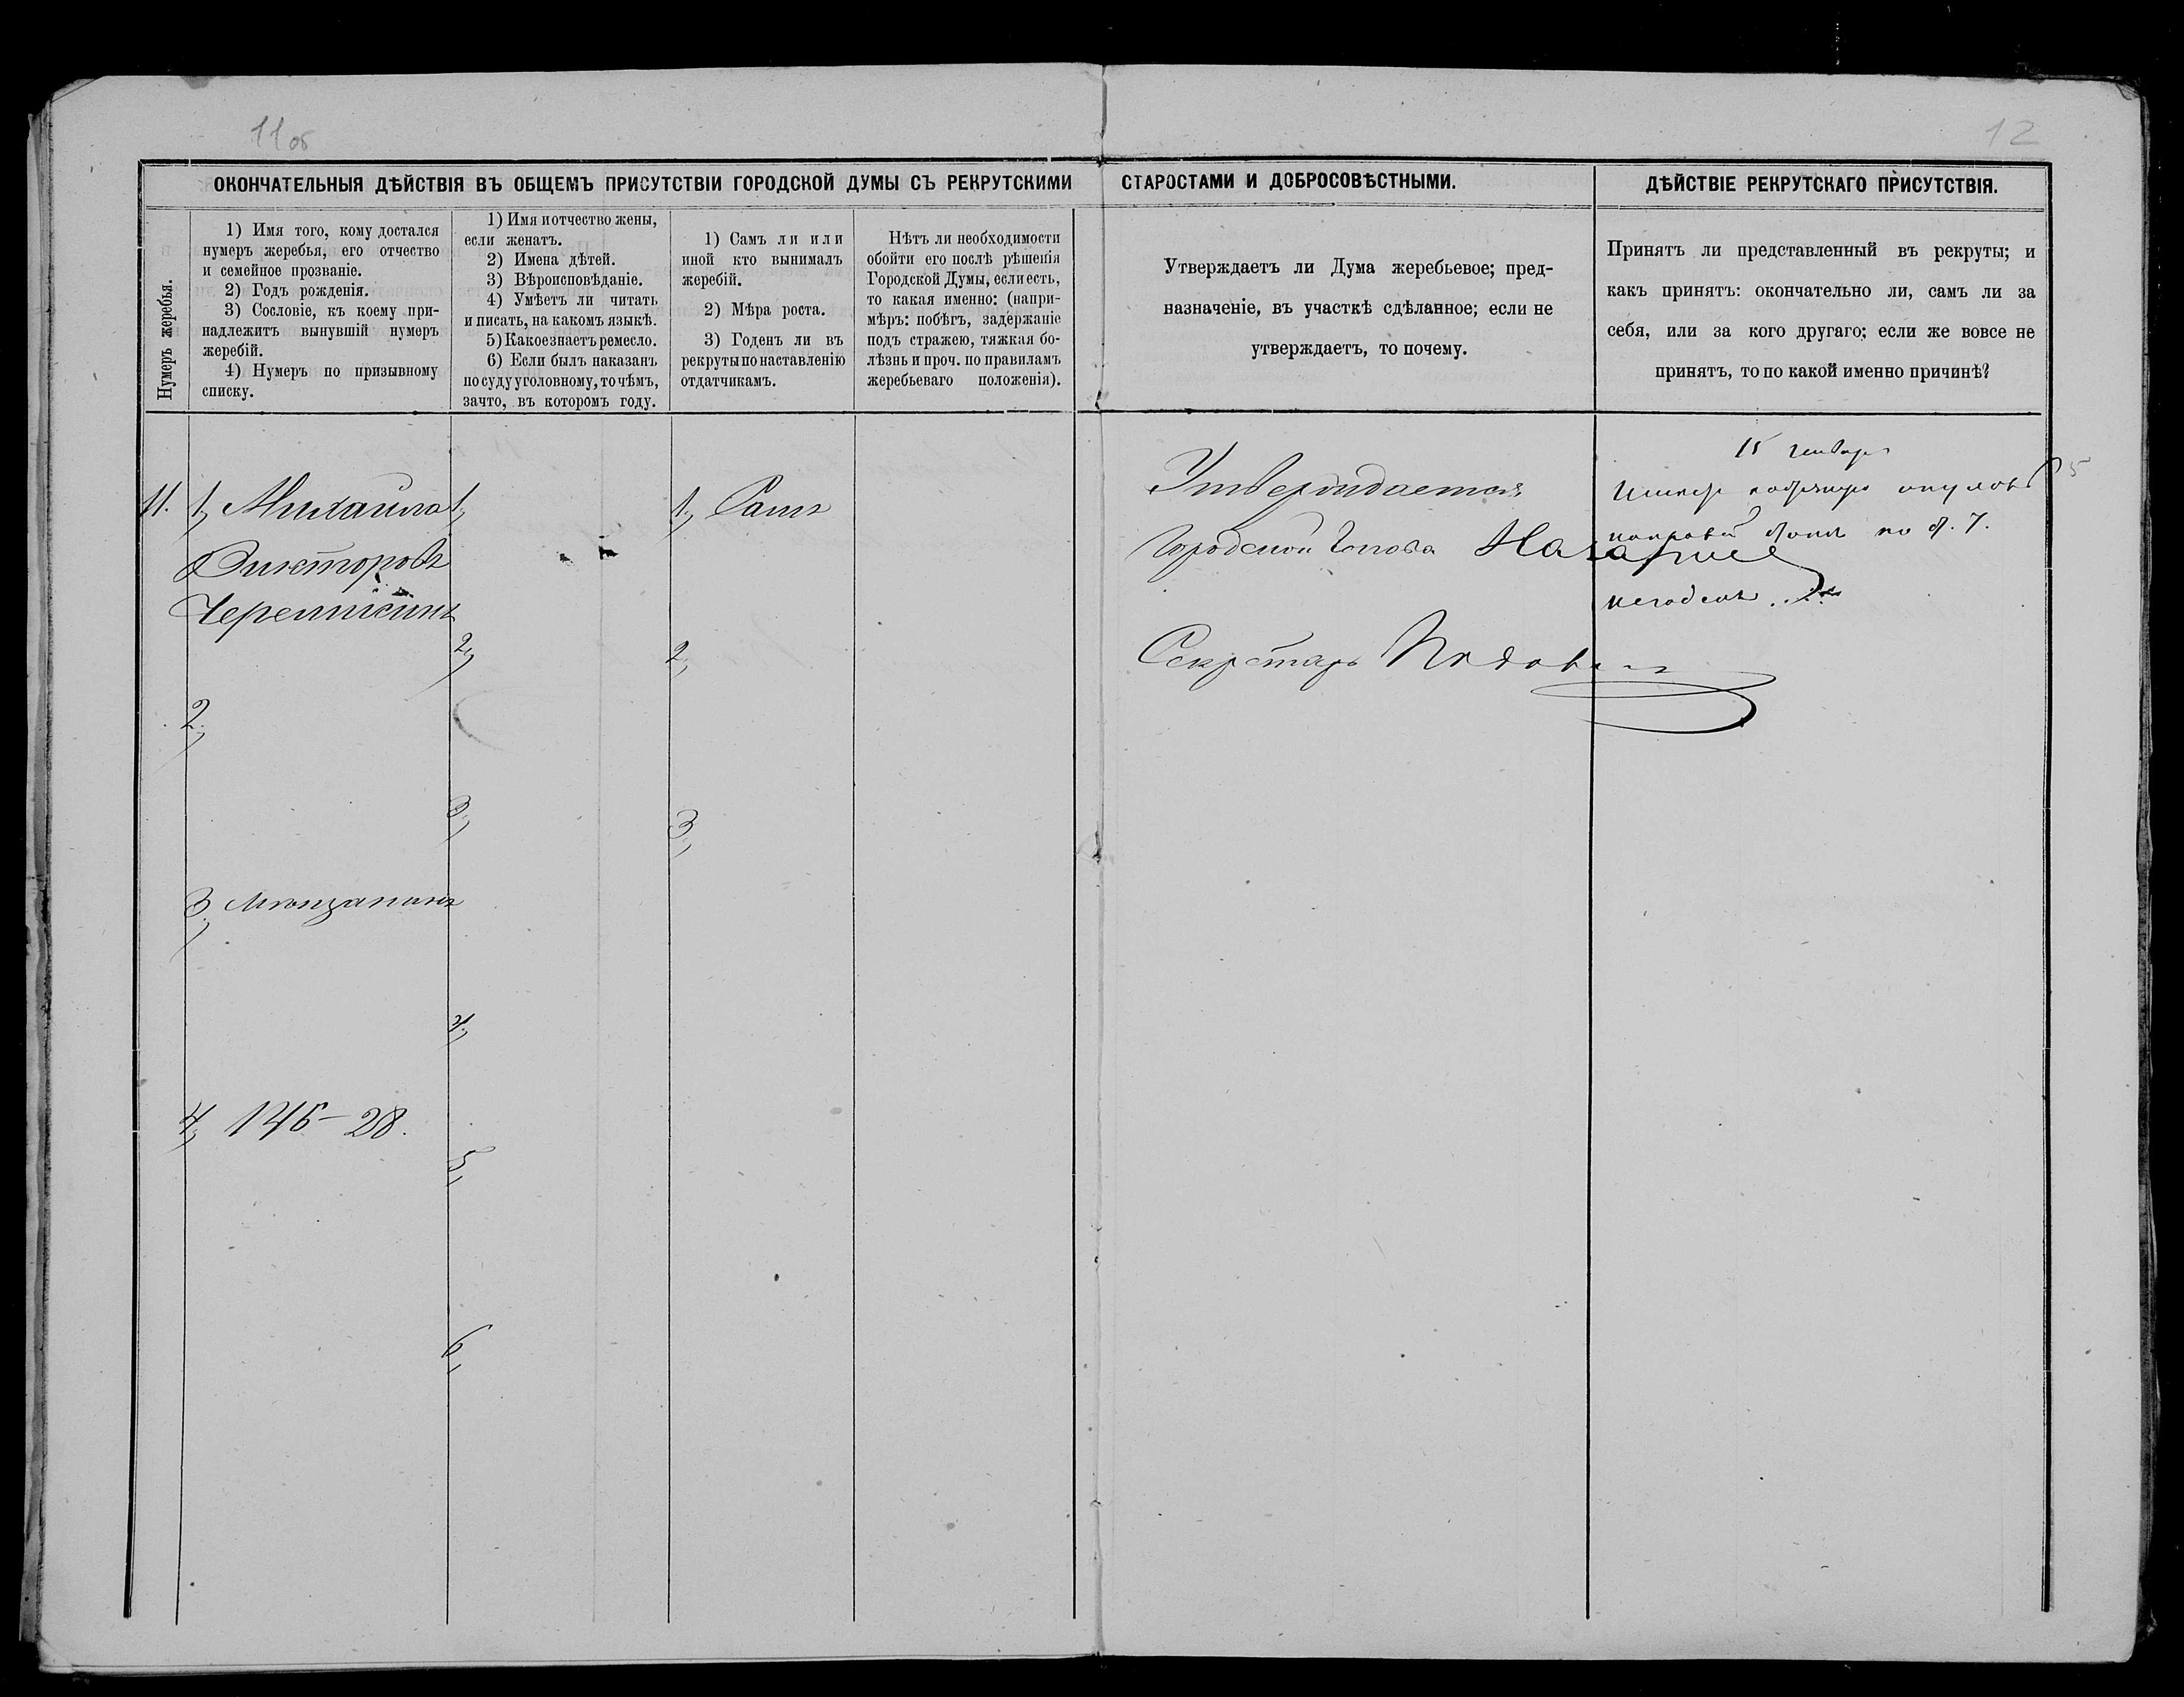 11об
12
ОКОНЧАТЕЛЬНЫЯ ДѢЙСТВІЯ ВЪ ОБЩЕМЪ ПРИСУТСТВІИ ГОРОДСКОЙ ДУМЫ СЪ РЕКРУТСКИМИ СТАРОСТАМИ И ДОБРОСОВѢСТНЫМИ.
ДѢЙСТВІЕ РЕКРУТСКАГО ПРИСУТСТВІЯ.
Нумеръ жеребья.
1) Имя того, кому достался
нумеръ жеребья, его отчество
и семейное прозваніе.
2) Годъ рожденія.
3) Сословіе, къ коему при-
надлежитъ вынувшій нумеръ
жеребій.
4) Нумеръ по призывному
списку.
1) Имя и отчество жены,
если женатъ.
2) Имена дѣтей.
3) Вѣроисповѣданіе.
4) Умѣетъ ли читать
и писать, на какомъ языкѣ.
5) Какое знаетъ ремесло.
6) Если былъ наказанъ
по суду уголовному, то чѣмъ,
за что, въ которомъ году.
1) Самъ ли или
иной кто вынималъ
жеребій.
2) Мѣра роста.
3) Годенъ ли въ
рекруты по наставленію
отдатчикамъ.
Нѣтъ ли необходимости
обойти его послѣ рѣшенія
Городской Думы, если есть,
то какая именно: (напри-
мѣръ: побѣгъ, задержаніе
подъ стражею, тяжкая бо-
лѣзнь и проч. по правиламъ
жеребьеваго положенія).
Утверждаетъ ли Дума жеребьевое; пред-
назначеніе, въ участкѣ сдѣланное; если не
утверждаетъ, то почему.
Принятъ ли представленный въ рекруты; и
какъ принятъ: окончательно ли, самъ ли за
себя, или за кого другаго; если же вовсе не
принятъ, то по какой именно причинѣ?
11.
1, Михаила
Викторовъ
Черемисинъ
2,
3, мѣщанинъ
4, 145-28.
1,
2,
3,
4,
5,
6,
1, Самъ
2,
3,
Утверждается
Городской Голова
Секретарь
15 Января
по
негоденъ
5